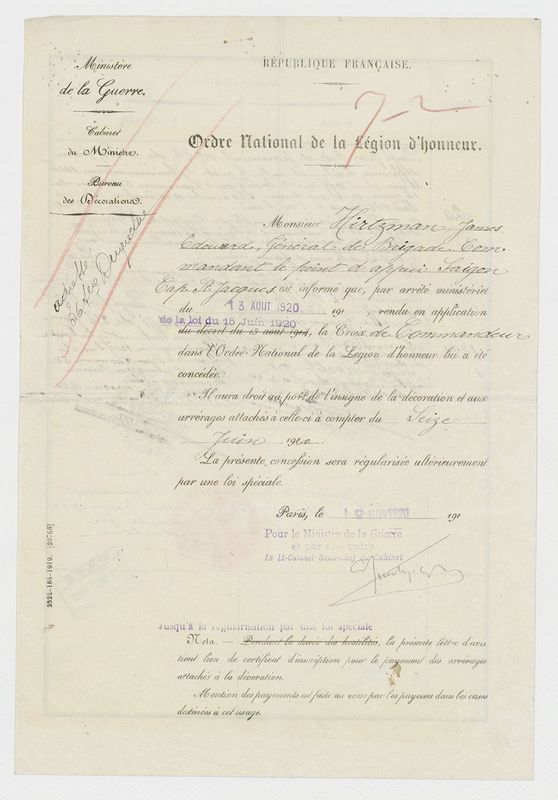 RÉPUBLIQUE FRANÇAISE.
Ministère
de la Guerre.
Cabinet
du Ministre.
Bureau
des Décorations.
7-2
Ordre National de la Légion d'honneur.
Monsieur Hirtzman, James
Edouard, Général de Brigade Com
mandant le point d'appui Saigon
Cap St Jacques est informé que, par arrêté ministériel
du 13 AOUT 1920 191 rendu en application
de la loi du 15 Juin 1920
du décret du 13 août 1914, la Croix de Commandeur
dans l'Ordre National de la Légion d'honneur lui a été
concédée.
Il aura droit au port de l'insigne de la décoration et aux
arrérages attachés à celle-ci à compter du Seize
Juin 1920.
La présente concession sera régularisée ultérieurement
par une loi spéciale.
Paris, le 12 NOV 1920 191
Pour le Ministre de la Guerre
et par son ordre
Le Lt-Colonel Sous-Chef du Cabinet
2524-184-1919. [20768]
Jusqu'à la régularisation par une loi spéciale
Nota. — Pendant la durée des hostilités, la présente lettre d'avis
tient lieu de certificat d'inscription pour le payement des arrérages
attachés à la décoration.
Mention des payements est faite au verso par les payeurs dans les cases
destinées à cet usage.